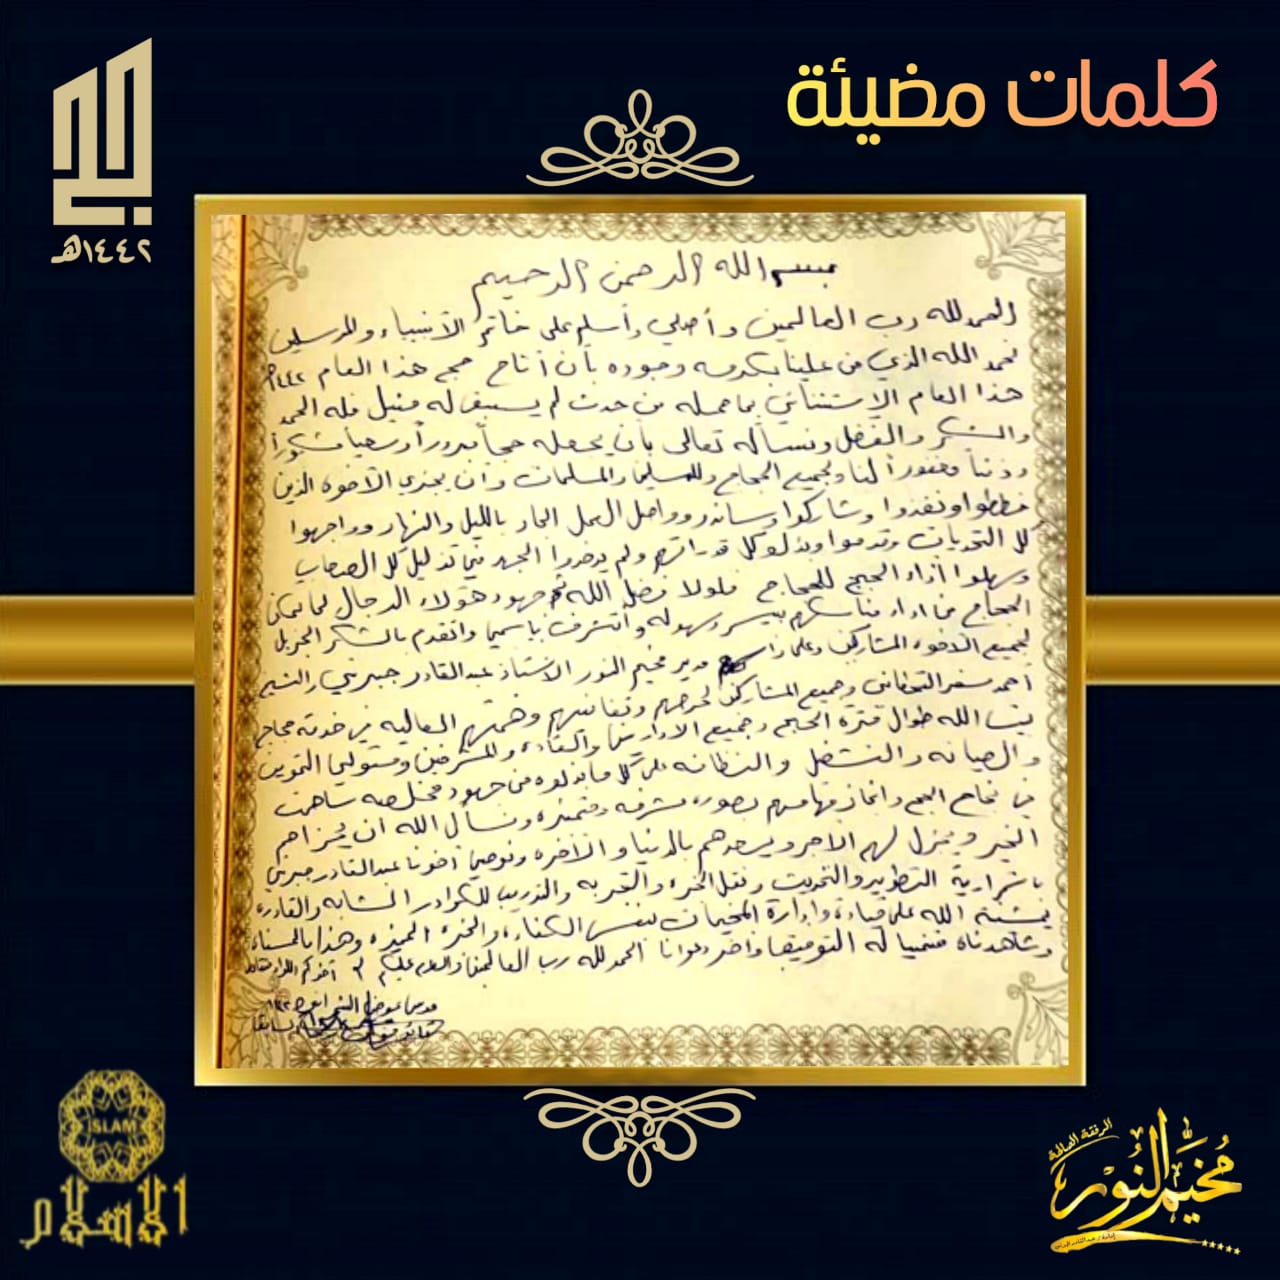 كلمات مضيئة
الحج
١٤٤٢هـ
بسم الله الرحمن الرحيم
الحمد لله رب العالمين وأصلي وأسلم على خاتم الأنبياء والمرسلين
نحمد الله الذي من علينا بكرمه وجوده بأن أتاح حج هذا العام ١٤٤٢هـ
هذا العام الإستثنائي بما حمله من حدث لم يسبق له مثيل فله الحمد
والشكر والفضل ونسأله تعالى بأن يجعله حجاً مبروراً وسعياً مشكوراً
وذنباً مغفوراً لنا ولجميع الحجاج وللمسلمين والمسلمات وأن يجزي الأخوة الذين
خططوا ونفذوا وشاركوا وساندو وواصل العمل الجاد بالليل والنهار وواجهوا
كل التحديات وقدموا وبذلو كل قدراتهم ولم يدخروا الجهد في تذليل كل الصعاب
وسهلوا أداء الحج للحجاج فلولا فضل الله ثم جهود هؤلاء الرجال لما تمكن
الحجاج من اداء مناسكهم بيسر وسهولة وأتشرف باسمي واتقدم بالشكر الجزيل
لجميع الاخوة المشاركين وعلى رأسهم مدير مخيم النور الاستاذ عبدالقادر جبرتي والشيخ
احمد سفر القحطاني وجميع المشاركين لحرصهم وتفانيهم وهمتهم العاليه في خدمة حجاج
بيت الله طوال فترة الحج وجميع الاداريين والقادة والمشرفين ومسئولي التموين
والصيانه والتشغيل والنظافه على كل ما بذلوه من جهود مخلصه ساهمت
في نجاح الحج وانجاز مهامهم بصوره مشرفه ومتميزه ونسأل الله ان يجزاهم
الخير ويجزل لهم الاجر ويسعدهم بالدنيا والآخره ونوصي أخونا عبدالقادر جبرتي
باستمرارية التطوير والتحديث ونقل الخبره والتجربه والتدريب للكوادر الشابه والقادره
بمشيئة الله على قيادة وإدارة المخيمات بنفس الكفاءه والخبره المميزه وهذا ما لمسناه
وشاهدناه متمنيا له التوفيق وآخر دعوانا الحمد لله رب العالمين والسلام عليكم أخوكم اللواء متقاعد
١٢٢
سابقا
ISLAM
الاسلام
الرفقة الصالحة
مخيم النور